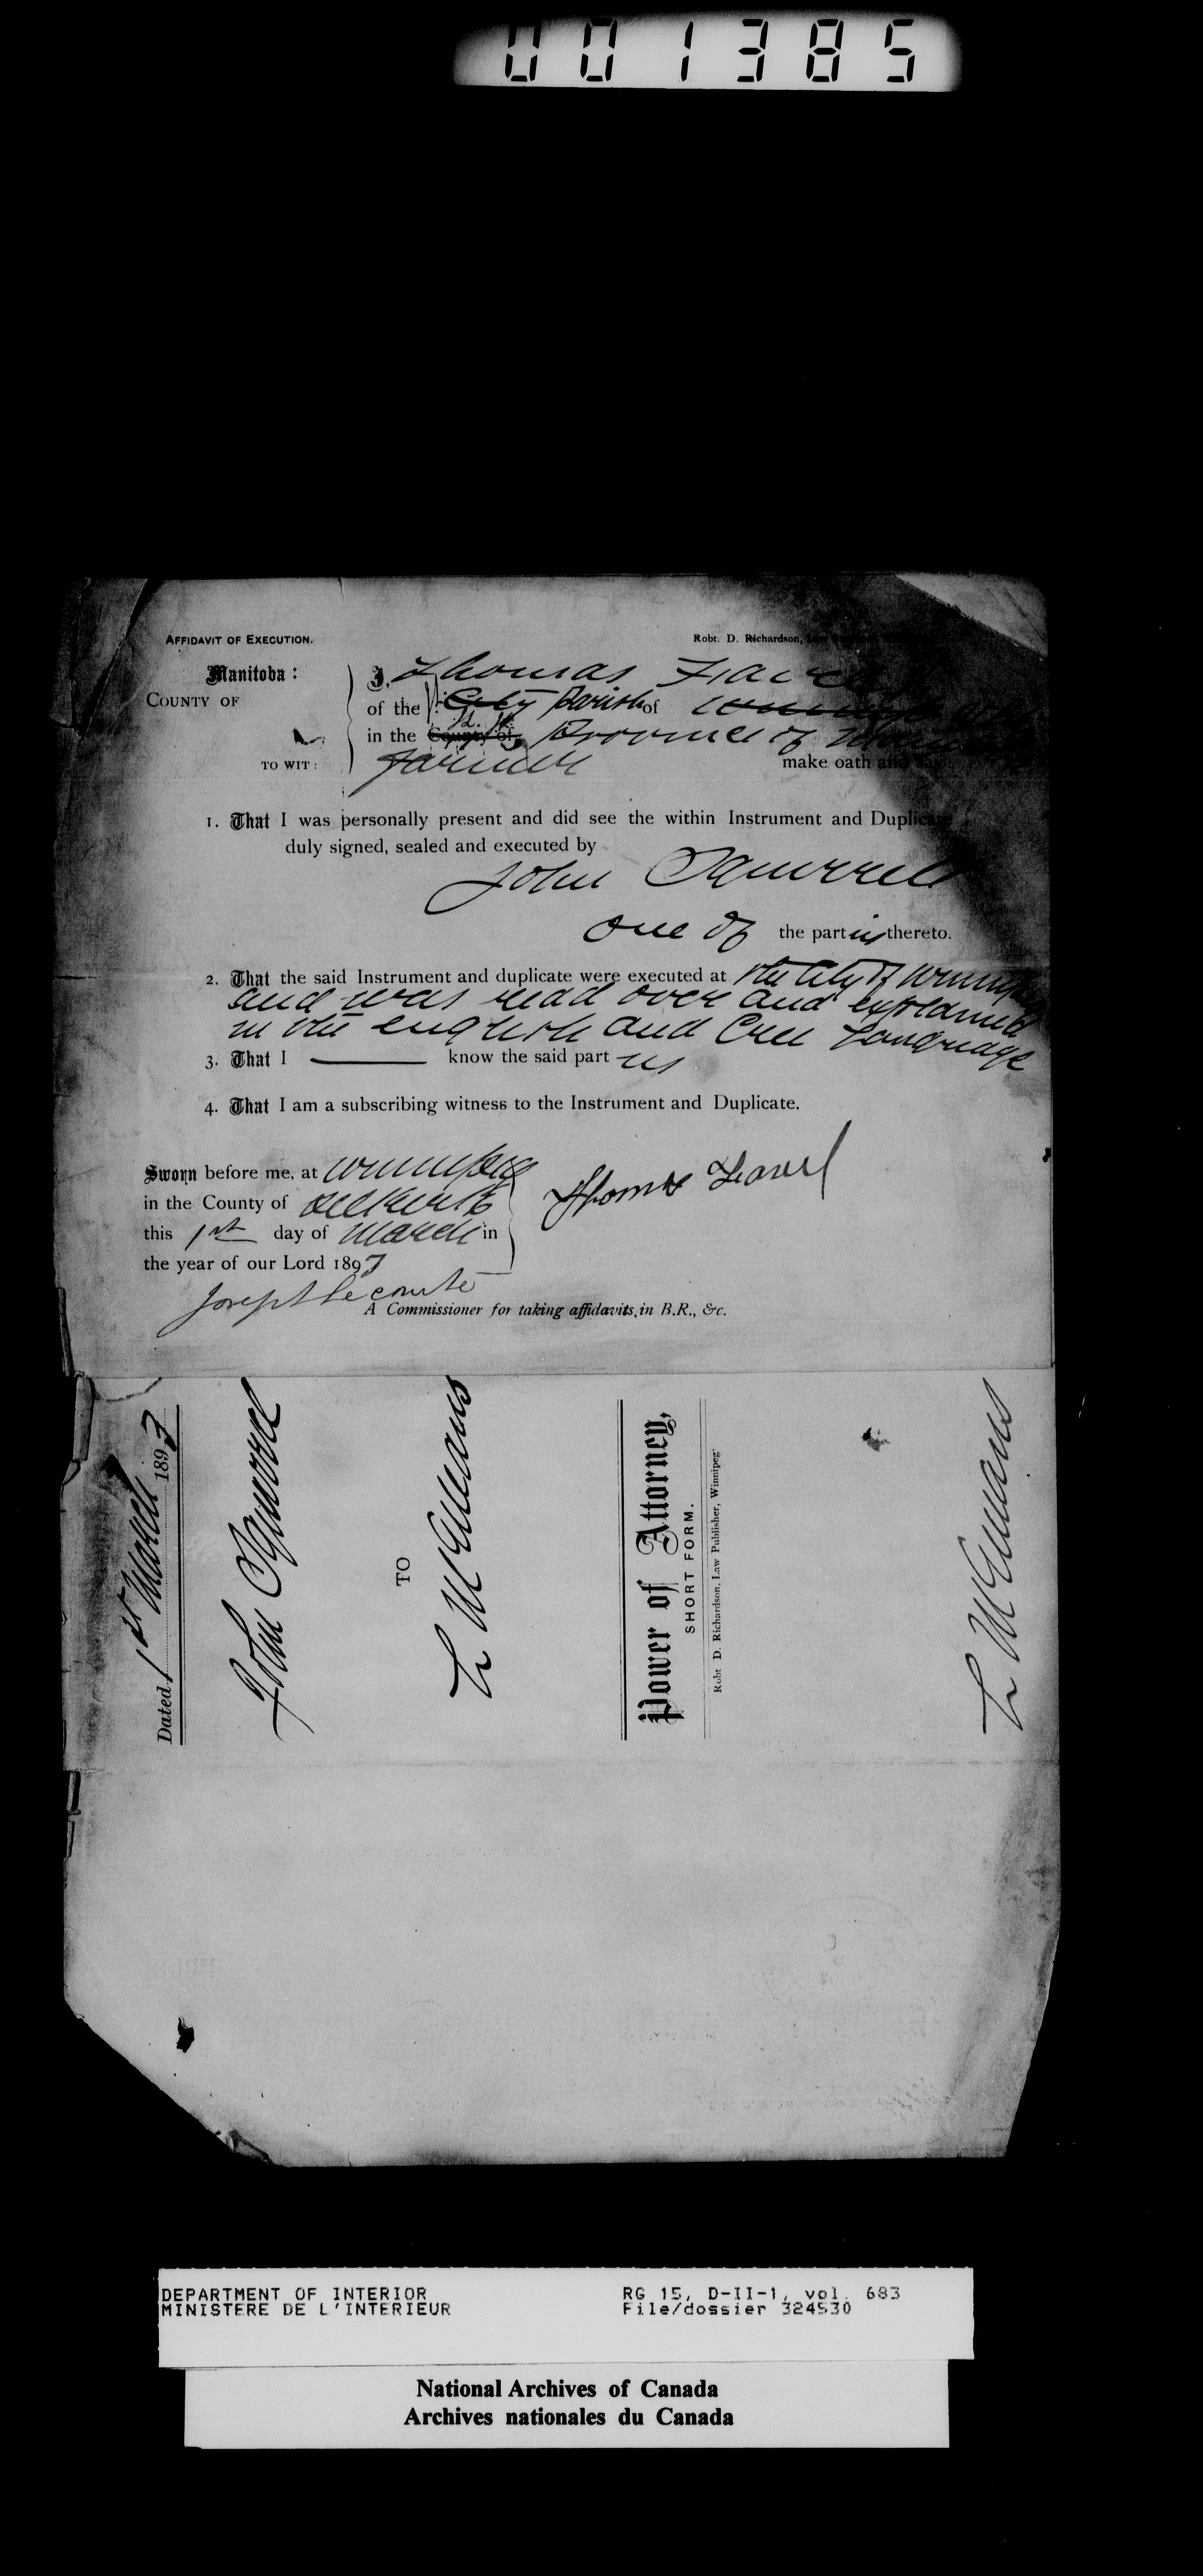 001385
AFFIDAVIT OF EXECUTION.
Robt. D. Richardson,
Manitoba:
COUNTY OF
TO WIT:
I, Thomas
of the City Parish of
in the County of, Province of
farmer make oath and say
1. That I was personally present and did see the within Instrument and Duplicate
duly signed, sealed and executed by
John Squirrel
one of the parties thereto.
2. That the said Instrument and duplicate were executed at the City of Winnipeg
and was read over and explained
in the english and Cree Language
3. That I know the said parties
4. That I am a subscribing witness to the Instrument and Duplicate.
Sworn before me, at Winnipeg
in the County of Selkirk
this 1st day of March in
the year of our Lord 1897
Thomas
Joseph Lecomte
A Commissioner for taking affidavits, in B.R., &c.
Dated 1st March 1897
John Squirrel
TO
L McMeans
Power of Attorney,
SHORT FORM.
Robt D. Richardson, Law Publisher, Winnipeg
L McMeans
DEPARTMENT OF INTERIOR
MINISTERE DE L'INTERIEUR
RG 15, D-II-1, vol. 683
File/dossier 324530
National Archives of Canada
Archives nationales du Canada